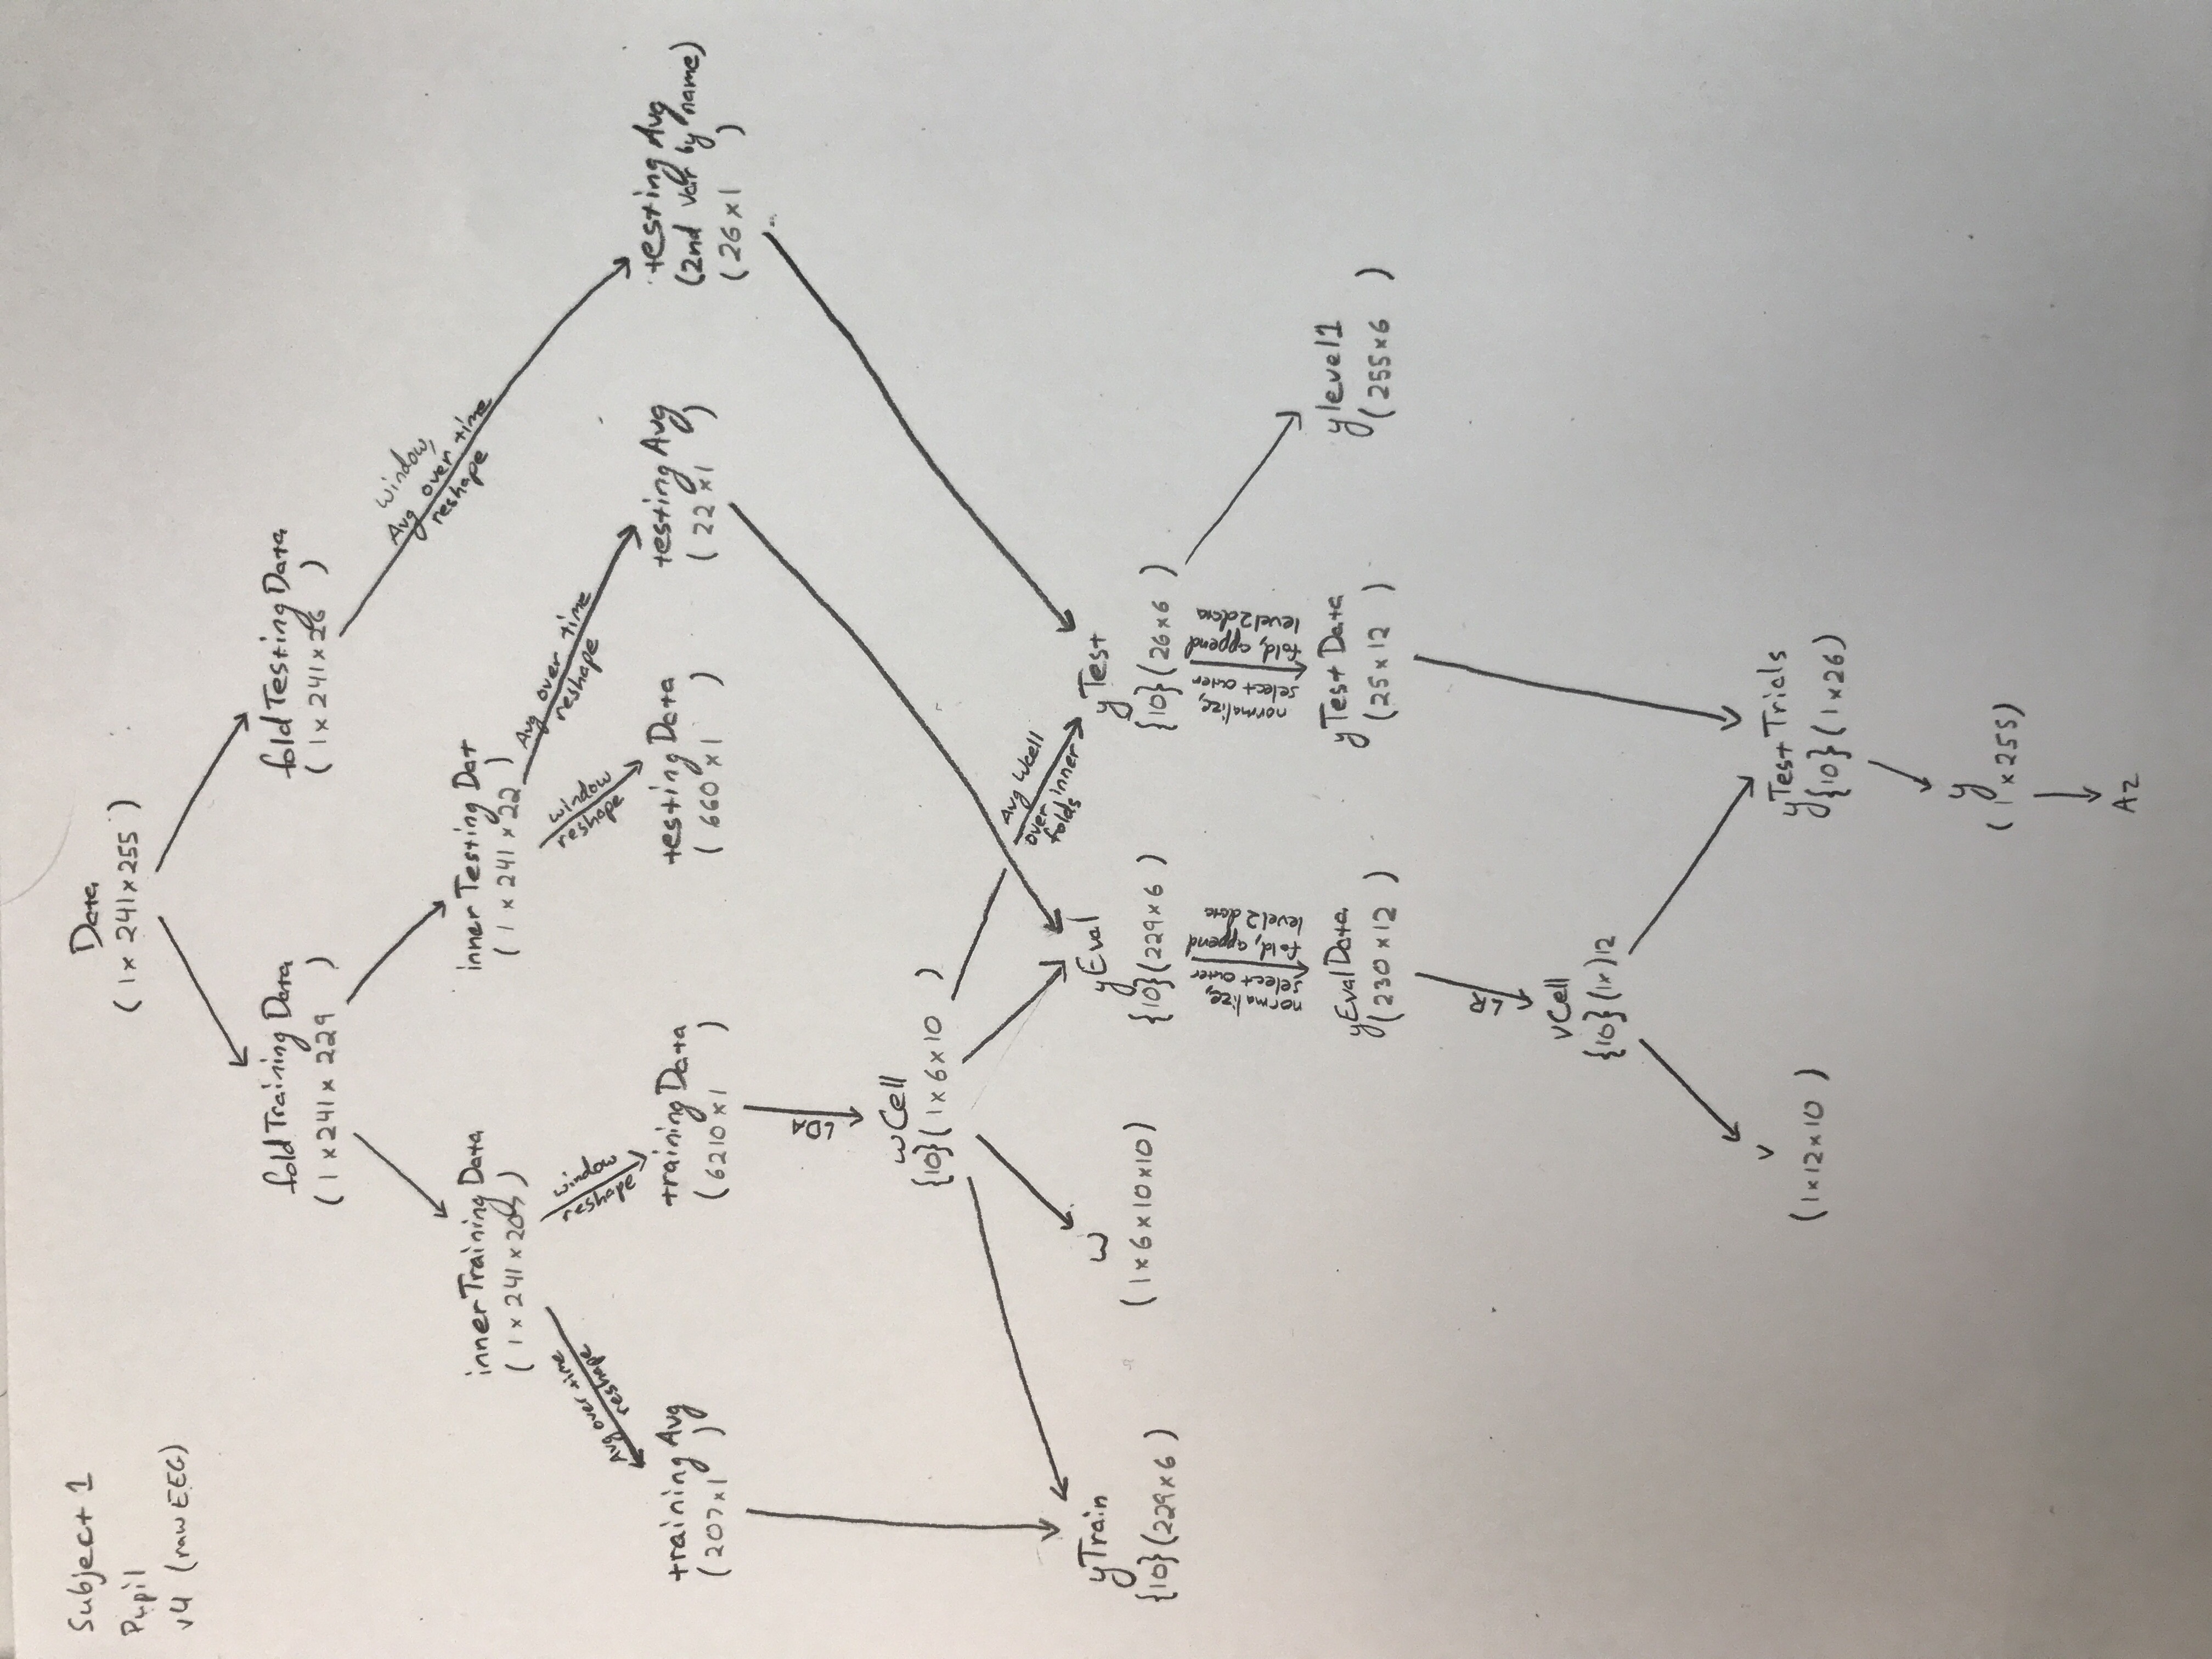 Subject 1
Pupil
v4 (raw EEG)
Data
( 1 x 241 x 255 )
fold Training Data
( 1 x 241 x 229 )
fold Testing Data
( 1 x 241 x 26 )
window,
Avg over time
reshape
inner Training Data
( 1 x 241 x 207 )
inner Testing Dat
( 1 x 241 x 22 )
Avg over time
reshape
window
reshape
window
reshape
Avg over time
reshape
training Avg
( 207 x 1 )
training Data
( 6210 x 1 )
testing Data
( 660 x 1 )
testing Avg
( 22 x 1 )
testing Avg
(2nd var by name)
( 26 x 1 )
LDA
wCell
{10} ( 1 x 6 x 10 )
Avg Wcell
over inner
folds
yTrain
{10} (229 x 6 )
w
( 1 x 6 x 10 x 10)
yEval
{10} (229 x 6 )
yTest
{10} (26 x 6 )
normalize,
select outer
fold, append
level2 data
normalize,
select outer
fold, append
level2 data
yEvalData
( 230 x 12 )
yTest Data
( 25 x 12 )
ylevel1
( 255 x 6 )
LR
vCell
{10} (1x)12
v
( 1 x 12 x 10 )
yTest Trials
{10} ( 1 x 26)
y
( 1 x 255)
Az